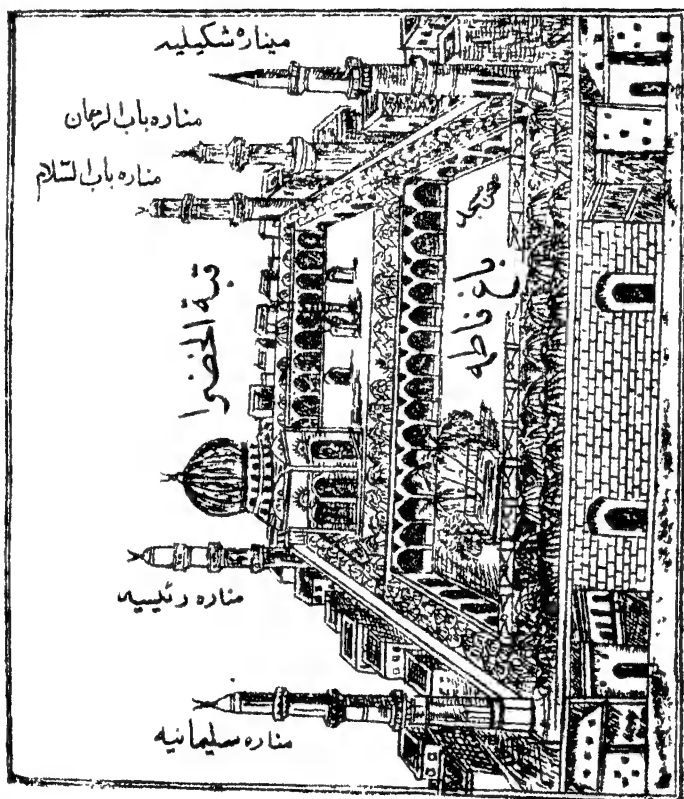 میناره شکیلیه
مناره باب الرحمان
مناره باب السّلام
قبة الخضرا
صحن مسجد
باغ فاطمه
مناره رئیسیه
مناره سلیمانیه